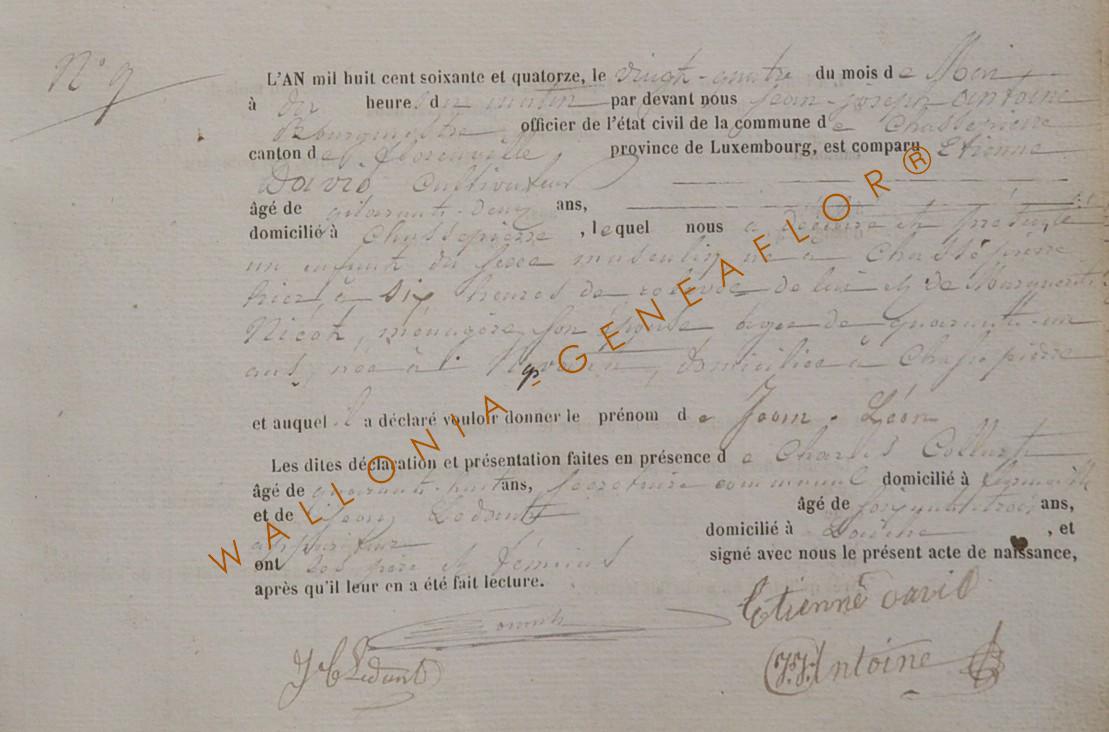 N° 9
L'AN mil huit cent soixante et quatorze, le vingt-quatre du mois de Mars
à dix heures du matin par devant nous Jean-Joseph Antoine
Bourgmestre officier de l'état civil de la commune de Chassepierre
canton de Florenville province de Luxembourg, est comparu Etienne
David Cultivateur
âgé de quarante-deux ans,
domicilié à Chassepierre, lequel nous a déclaré et présenté
un enfant du sexe masculin né à Chassepierre
hier à six heures de relevée de lui et de Marguerite
Nicot, ménagère, son épouse âgée de quarante-un
ans, née à domiciliée à Chassepierre
et auquel il a déclaré vouloir donner le prénom de Jean-Léon
Les dites déclaration et présentation faites en présence de Charles Collart
âgé de quarante-huit ans, Secrétaire communal domicilié à
et de Jean Ledant âgé de soixante-trois ans,
domicilié à Laiche, et
ont les père et témoins signé avec nous le présent acte de naissance,
après qu'il leur en a été fait lecture.
Etienne David
J C Ledant
J.J. Antoine
WALLONIA-GENEAFLOR®